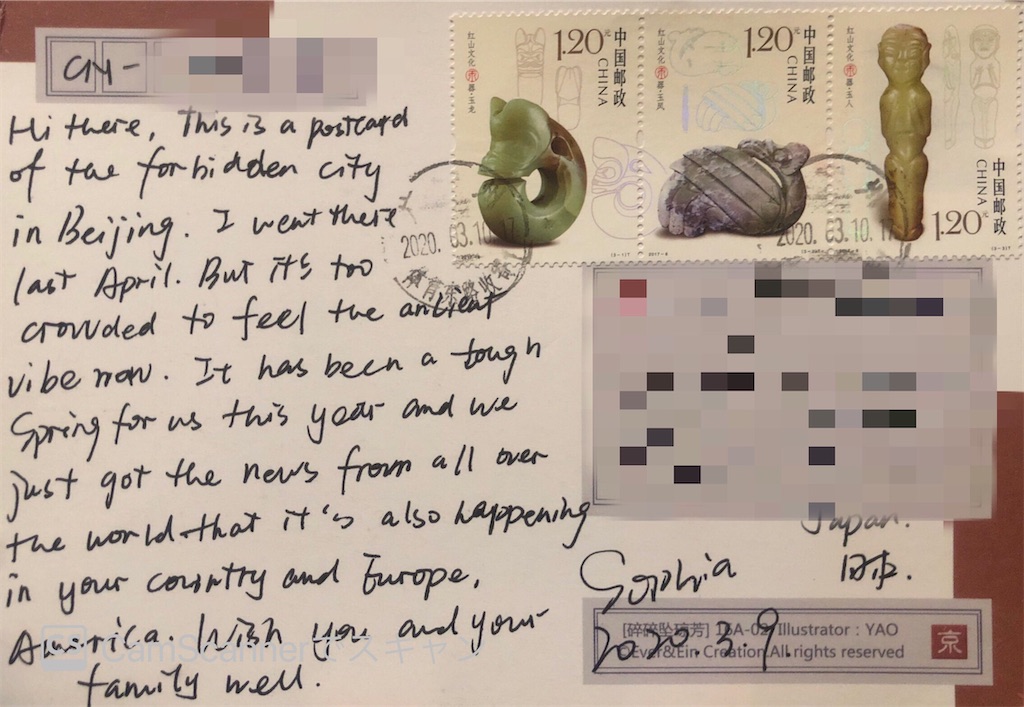 CN-
Hi there, This is a postcard
of the forbidden city
in Beijing. I went there
last April. But it's too
crowded to feel the ancient
vibe now. It has been a tough
Spring for us this year and we
just got the news from all over
the world that it's also happening
in your country and Europe,
America. Wish you and your
family well.
红山文化
器·玉龙
1.20元
中国邮政
CHINA
红山文化
器·玉凤
1.20元
中国邮政
CHINA
红山文化
器·玉人
中国邮政
CHINA
1.20元
2020.03.10.17
2020.03.10.17
Japan.
日本.
Sophia
2020.3.9.
Illustrator : YAO
Ever&Ein Creation All rights reserved
京
CamScannerでスキャン